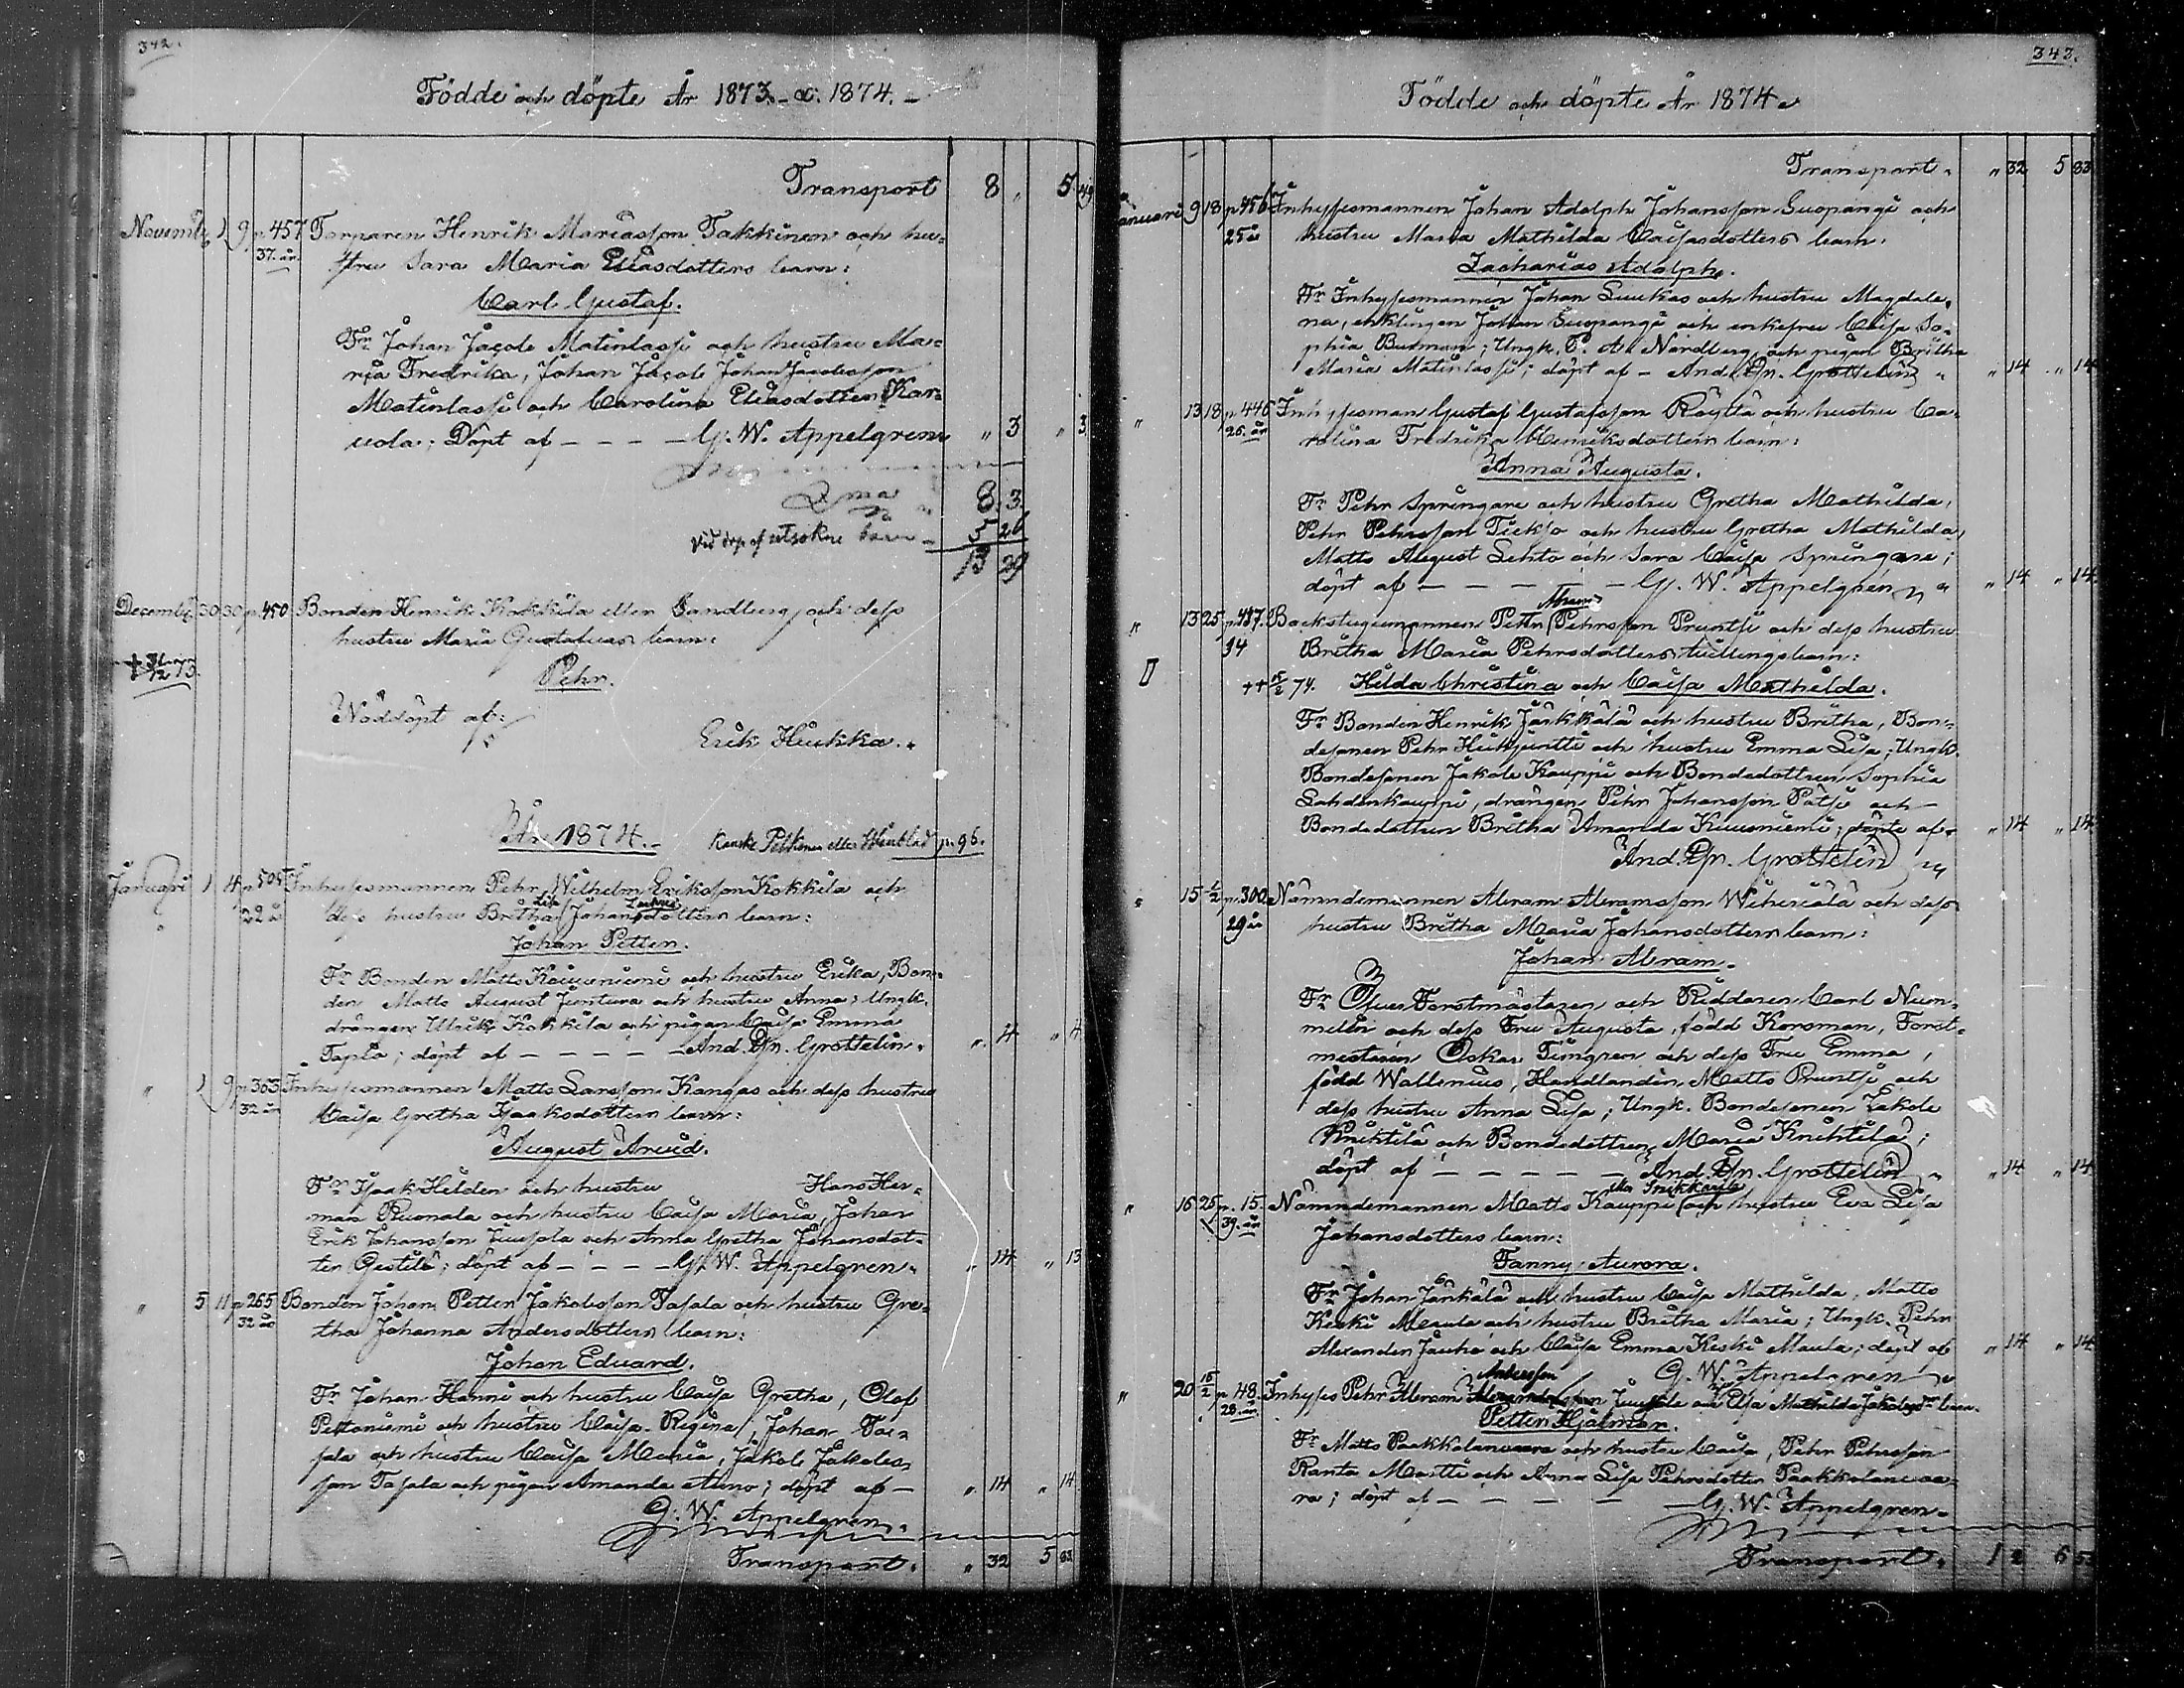 342.
Födde och döpte År 1873.- & 1874.-
Transport 8 " 5 49
Novemb. 1 9 p. 457 Torparen Henrik Mariasson Takkinen och hu-
37. år. stru Sara Maria Eliasdotters barn:
Carl Gustaf.
Fr. Johan Jacob Matinlassi och hustru Ma-
ria Fredrika, Johan Jacob Johan Jacobsson
Matinlassi och Carolina Eliasdotter Kar-
uola; Döpt af - - - - G. W. Appelgren " 3 " 3
8. 3
vid dop af utsokne barn - 5 26
13 29
Decemb. 30 30 p. 450 Bonden Henrik Kokkila eller Sandberg och dess
hustru Maria Gustafvas barn:
+ 31/12 73.
Pehr.
Nöddöpt af:
Erik Hukka.
År 1874.- p. 96.
Januari 1 4 p 505 Inhysesmannen Pehr Wilhelm Eriksson Kokkila och
22 år Lisa
dess hustru Britha Johansdotters barn:
Johan Petter.
Fr. Bonden Matts Kouvoniemi och hustru Erika, Bon-
den Matts August Juntura och hustru Anna; Ungk.
drängen Ulrik Kokkila och pigan Caisa Emma
Tapla; döpt af - - - - And. Joh. Grottelin. " 4 " 4
" 1 9 p 363 Inhysesmannen Matts Larsson Kangas och dess hustru
32 år Caisa Gretha Isaaksdotters barn:
August Arvid.
Fr. Isaak Hilden och hustru Hans Her-
man Ruonala och hustru Caisa Maria, Johan
Erik Johansson Juusola och Anna Gretha Johansdot-
ter Gestilä; döpt af - - - - G. W. Appelgren. " 14 " 13
" 5 11 p 265 Bonden Johan Petter Jakobsson Tasala och hustru Gre-
32 år tha Johanna Andersdotters barn:
Johan Eduard.
Fr. Johan Hanni och hustru Caisa Gretha, Olof
Peltoniemi och hustru Caisa Regina, Johan Ta-
sala och hustru Caisa Maria, Jakob Jakobs-
son Tasala och pigan Amanda Alino; döpt af - " 14 " 14
G. W. Appelgren.
Transport. " 32 5 83
343.
Födde och döpte År 1874.
Transport. " 32 5 83
Januari 9 18 p. 456 Inhysesmannen Johan Adolph Johansson Suopangi och
25 år hustru Maria Mathilda Caisasdotters barn:
Zacharias Adolph.
Fr. Inhysesmannen Johan Luukas och hustru Magdale-
na, enklingen Johan Suopangi och enkefru Caisa So-
phia Budman; Ungk. P. A. Nordberg och pigan Britha
Maria Matinlassi; döpt af - And. Joh. Grottelin " " 14 " 14
" 13 18 p. 446 Inhysesman Gustaf Gustafsson Röyttä och hustru Ca-
26. år rolina Fredrika Henriksdotters barn:
Anna Augusta.
Fr. Pehr Springare och hustru Gretha Mathilda,
Pehr Pehrsson Tiekso och hustru Gretha Mathilda,
Matts August Lehto och Sara Caisa Springare;
döpt af - - - - - G. W. Appelgren " " 14 " 14
Abram
" 13 25 p. 487. Backstugumannen Petter Pehrsson Pruntsi och dess hustru
34 Britha Maria Pehrsdotters tvillingbarn:
++ 15/2 74. Hilda Christina och Caisa Mathilda.
Fr. Bonden Henrik Järkkälä och hustru Britha, Bon-
desonen Pehr Huhjuntti och hustru Emma Lisa; Ungk.
Bondesonen Jakob Kauppi och Bondedottren Sophia
Lahdenkauppi, drängen Pehr Johansson Pätsi och
Bondedottren Britha Amanda Kuusniemi; döpte af " 14 " 14
And. Joh. Grottelin
" 15 1/2 p. 300 Nämndemannen Abram Abramsson Wiheriälä och dess
29 år hustru Britha Maria Johansdotters barn:
Johan Abram.
Fr. Öfver Forstmästaren och Riddaren Carl Num-
melin och dess Fru Augusta, född Korsman, Forst-
mestaren Oskar Timgren och dess Fru Emma,
född Wallenius, Handlanden Matts Pruntsi och
dess hustru Anna Lisa; Ungk. Bondesonen Jakob
Knihtilä och Bondedottren Maria Knihtilä;
döpt af - - - - - And. Joh. Grottelin " " 14 " 14
" 16 25 p. 15. Nämndemannen Matts Kauppi och hustru Eva Lisa
39. år Johansdotters barn:
Fanny Aurora.
Fr. Johan Jänkälä och hustru Caisa Mathilda, Matts
Keski Maula och hustru Britha Maria; Ungk. Pehr
Alexander Jauho och Caisa Emma Keski Maula; döpt af " 14 " 14
G. W. Appelgren
Andersson
" 20 15/2 p 48. Inhyses Pehr Abram Juusola och Elsa Mathilda Jakobsdrs barn.
28. år Petter Hjalmar.
Fr. Matts Paakkolanvaara och hustru Caisa, Pehr Pehrsson
Ranta Martti och Anna Lisa Pehrsdotter Paakkolanvaa-
ra; döpt af - - - - - G. W. Appelgren.
Transport. 1 2 6 53